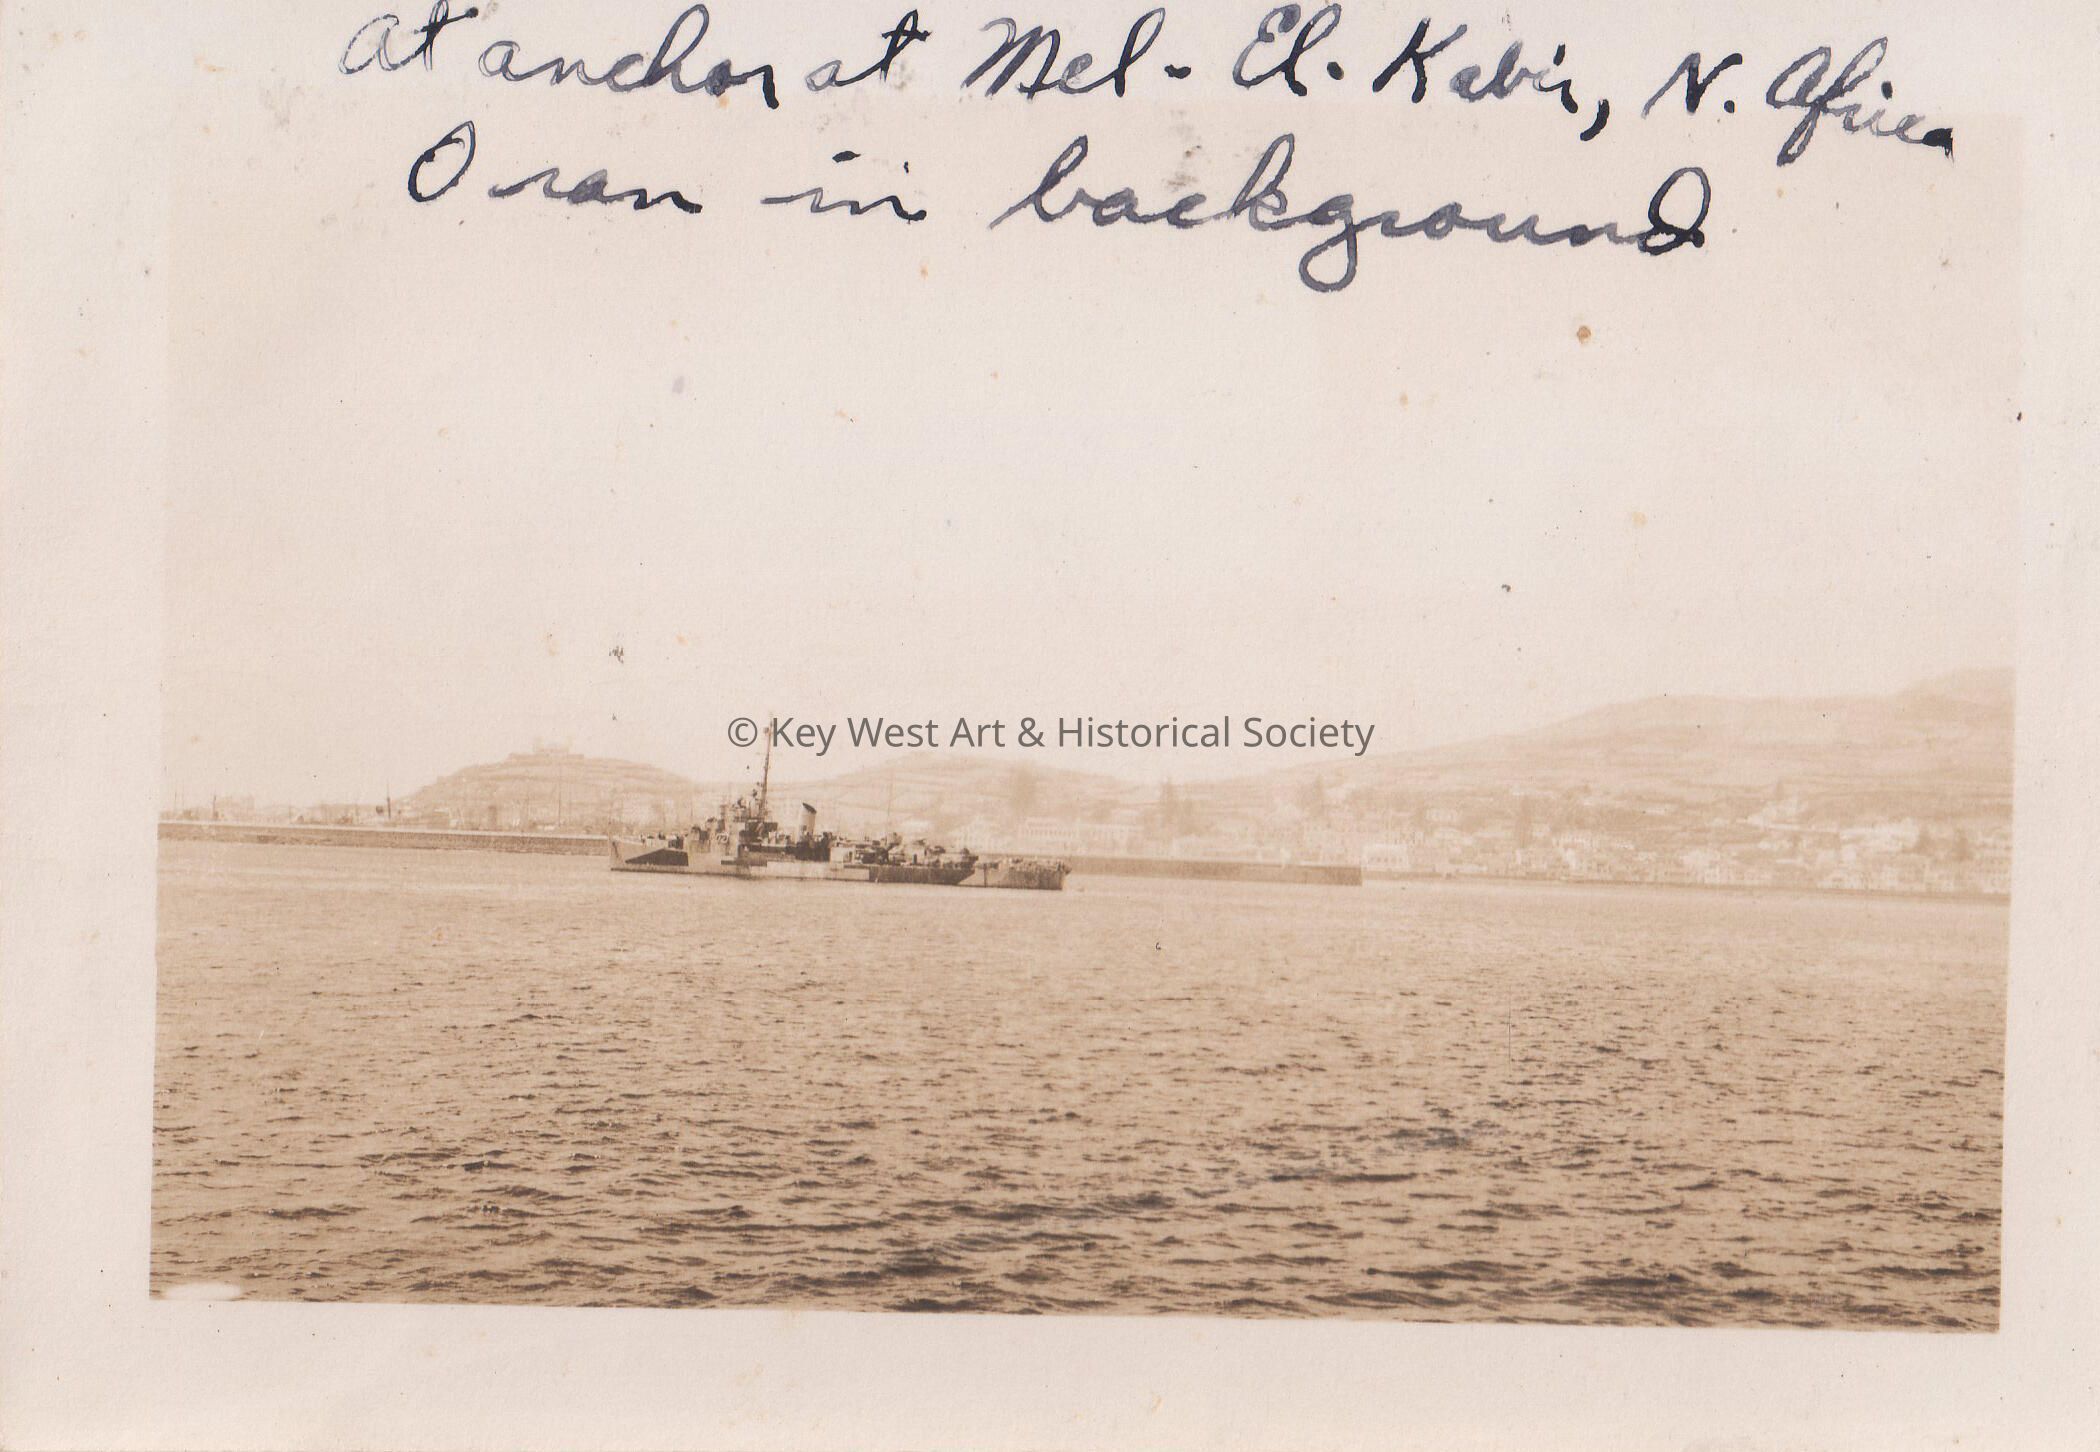 at anchor at Mel-El-Kabir, N. Africa
Oran in background
© Key West Art & Historical Society